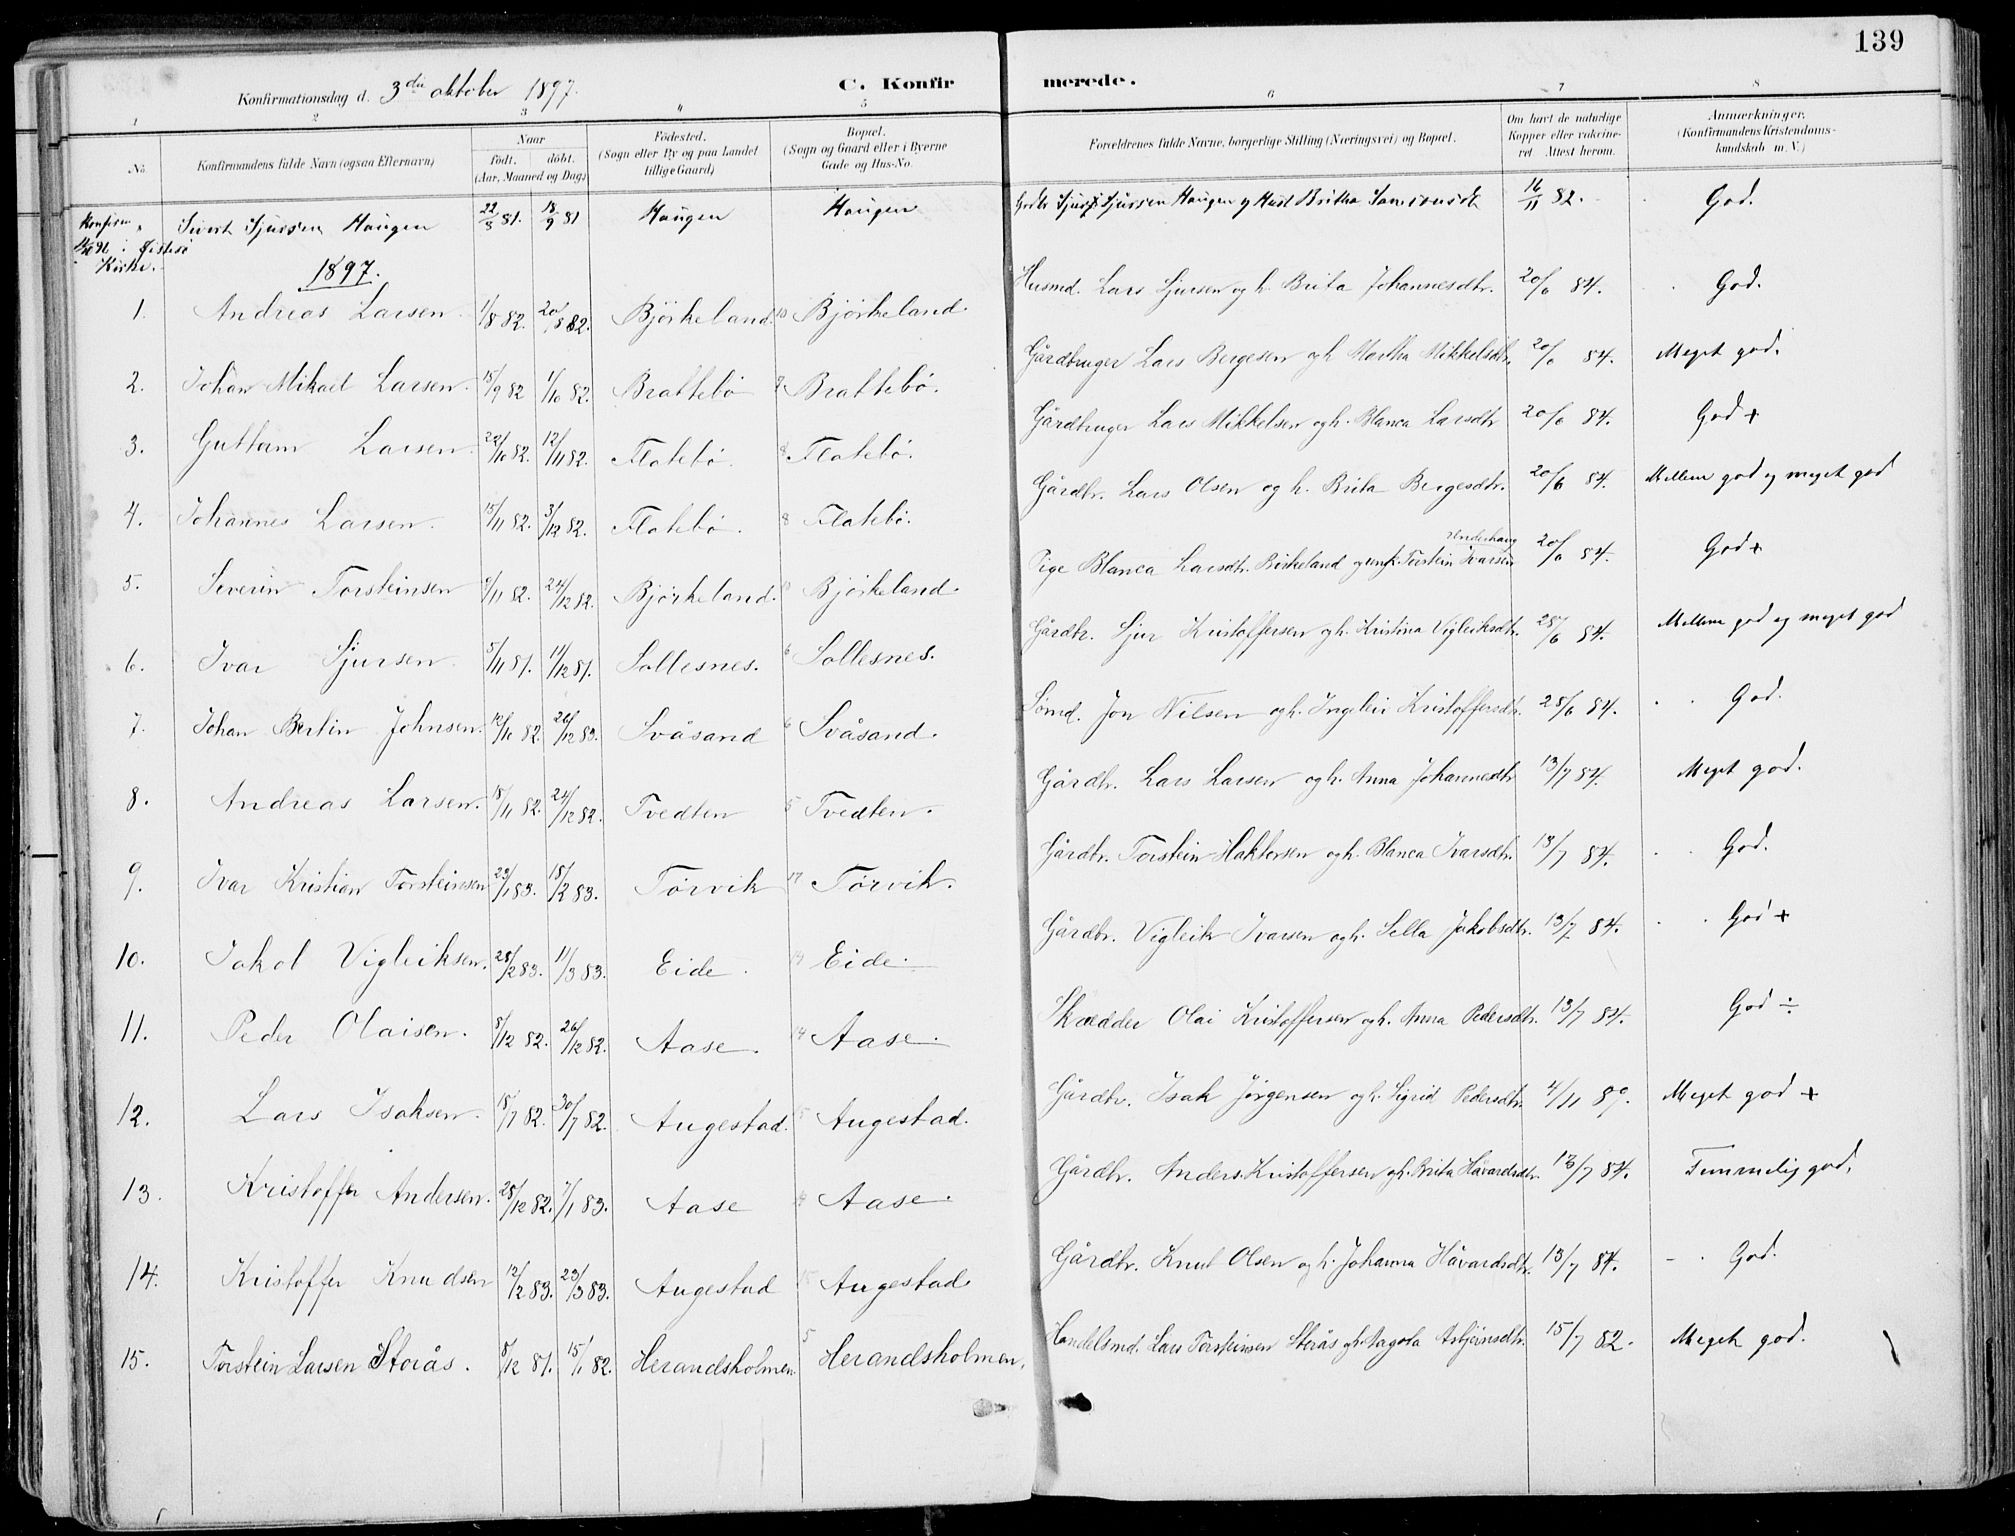 139
Konfirmationsdag d. 3die oktober 1897.
C. Konfirmerede.
1 2 3 4 5 6 7 8
No. Konfirmandens fulde Navn (ogsaa Efternavn) Naar født. døbt. (Aar, Maaned og Dag) Fødested. (Sogn eller By og paa Landet tillige Gaard) Bopæl. (Sogn og Gaard eller i Byerne Gade og Hus-No. Forældrenes fulde Navne, borgerlige Stilling (Næringsvei) og Bopæl. Om havt de naturlige Kopper eller vakcineret. Attest herom. Anmærkninger. (Konfirmandens Kristendomskundskab m. V.)
Konfirm. i Østesø Kirke. Sivert Sjursen Haugen 22/8 81. 18/9 81 Haugen Haugen Sjur Sjursen Haugen og Hust Britha Samsonsd 16/11 82. God.
1897.
1. Andreas Larsen 1/8 82. 20/8 82. Björkeland. 10 Björkeland. Husmd. Lars Sjursen og h. Brita Johannesdtr. 20/6 84. God.
2. Johan Mikael Larsen. 15/9 82 1/10 82. Brattebö 9 Brattebö. Gårdbruger Lars Bergesen og h. Martha Mikkelsdtr. 20/6 84. Meget god.
3. Guttorm Larsen 22/10 82. 12/11 82. Flatebö. 8 Flatebö. Gårdbruger Lars Mikkelsen og h. Blanca Larsdtr 20/6 84. God +
4. Johannes Larsen. 15/11 82. 3/12 82. Flatebö. 8 Flatebö. Gårdbr. Lars Olsen og h. Brita Bergesdtr. 20/6 84. Mellem god og meget god
5. Severin Torsteinsen 9/11 82. 24/12 82. Björkeland. Björkeland. Pige Blanca Larsdtr. Birkeland og ungk. Torstein Ivarsen Underhaug 20/6 84. God +
6. Ivar Sjursen 5/11 81. 11/12 81. Sollesnes. 6 Sollesnes. Gårdbr. Sjur Kristoffersen og h. Kristina Vigleiksdtr. 28/6 84. Mellem god og meget god
7. Johan Bertin Johnsen. 12/10 82. 26/12 83. Svåsand 6 Svåsand. Sømd. Jon Nilsen og h. Ingeleiv Kristoffersdtr. 28/6 84. God.
8. Andreas Larsen. 18/11 82. 24/12 82. Tvedten 5 Tvedten. Gårdbr. Lars Larsen og h. Anna Johannesdtr 13/7 84. Meget god.
9. Ivar Kristian Torsteinsen 23/1 83. 18/2 83. Törvik 17 Törvik. Gårdbr. Torstein Haktorsen og h. Blanca Ivarsdtr. 13/7 84. God.
10. Jakob Vigleiksen. 28/2 83. 11/3 83. Eide. 13 Eide. Gårdbr. Vigleik Ivarsen og h. Sella Jakobsdtr. 13/7 84. God +
11. Peder Olaisen. 8/12 82. 26/12 82. Aase. 14 Aase. Skrædder Olai Kristoffersen og h. Anna Pedersdtr. 13/7 84. God ÷
12. Lars Isaksen. 18/7 82. 30/7 82. Augestad. 15 Augestad. Gårdbr. Isak Jörgensen og h. Sigrid Pedersdtr. 4/11 89. Meget god +
13. Kristoffer Andersen. 28/12 82. 7/1 83. Aase 14 Aase. Gårdbr. Anders Kristoffersen og h. Brita Håvardsdtr. 13/7 84. Temmelig god.
14. Kristoffer Knudsen 12/2 83. 23/3 83. Augestad 15 Augestad Gårdbr. Knut Olsen og h. Johanna Håvardsdtr. 13/7 84. God.
15. Torstein Larsen Storås. 8/12 81. 15/1 82. Herandsholmen. 5 Herandsholmen. Handelsmd. Lars Torsteinsen Storås og h. Aagota Asbjørnsdtr. 15/7 82. Meget god.